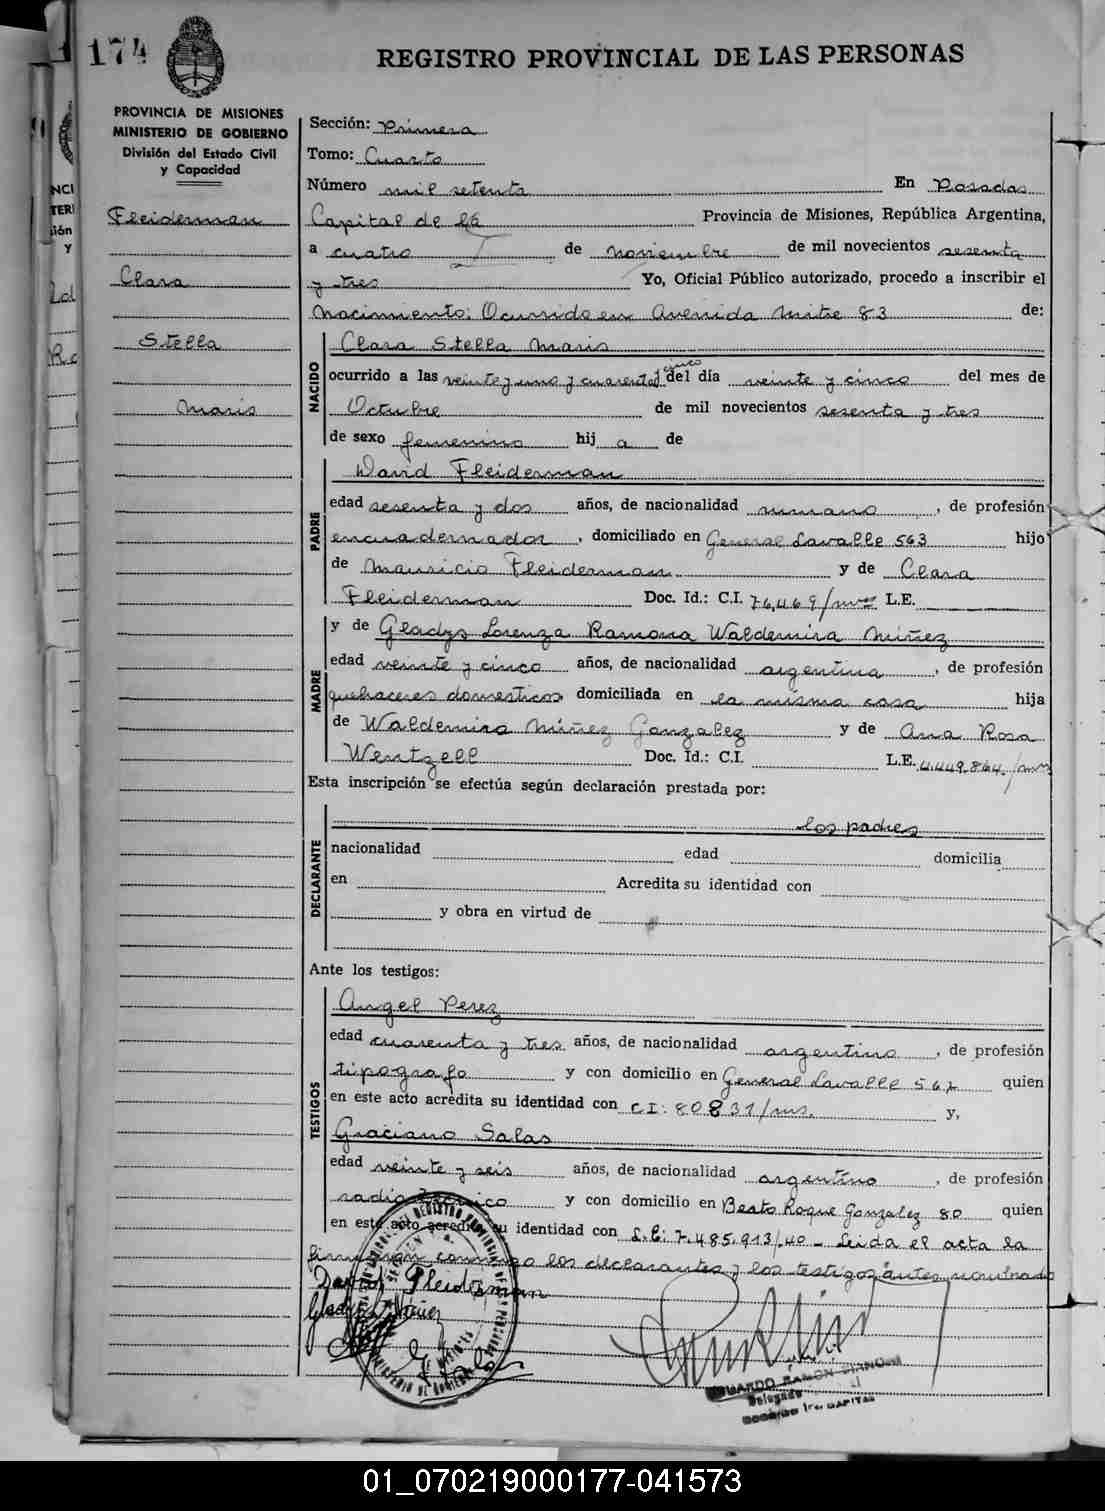 174
REGISTRO PROVINCIAL DE LAS PERSONAS
PROVINCIA DE MISIONES
MINISTERIO DE GOBIERNO
División del Estado Civil
y Capacidad
Fleiderman
Clara
Stella
Maris
Sección: Primera
Tomo: Cuarto
Número mil setenta En Posadas
Capital de la Provincia de Misiones, República Argentina,
a cuatro de noviembre de mil novecientos sesenta
y tres Yo, Oficial Público autorizado, procedo a inscribir el
Nacimiento: Ocurrido en Avenida Mitre 83 de:
NACIDO
Clara Stella Maris
ocurrido a las veinte y uno y cuarenta y cinco del día veinte y cinco del mes de
Octubre de mil novecientos sesenta y tres
de sexo femenino hij a de
PADRE
David Fleiderman
edad sesenta y dos años, de nacionalidad rumano, de profesión
encuadernador, domiciliado en General Lavalle 563 hijo
de Mauricio Fleiderman y de Clara
Fleiderman Doc. Id.: C.I. 76.469/mns L.E.
MADRE
y de Gladys Lorenza Ramona Waldemira Núñez
edad veinte y cinco años, de nacionalidad argentina, de profesión
quehaceres domesticos domiciliada en la misma casa hija
de Waldemiro Núñez Gonzalez y de Ana Rosa
Wentzell Doc. Id.: C.I. L.E. 4.449.864/mns
Esta inscripción se efectúa según declaración prestada por:
DECLARANTE
los padres
nacionalidad edad domicilia
en Acredita su identidad con
y obra en virtud de
Ante los testigos:
TESTIGOS
Angel Perez
edad cuarenta y tres años, de nacionalidad argentino, de profesión
tipografo y con domicilio en General Lavalle 567 quien
en este acto acredita su identidad con C.I: 80831/ms. y,
Graciano Salas
edad veinte y seis años, de nacionalidad argentino, de profesión
radio tecnico y con domicilio en Beato Roque Gonzalez 80 quien
en este acto acredita su identidad con L.E: 7.485.913/40 - Leida el acta la
firmaron conmigo los declarantes y los testigos antes nombrados
David Fleiderman
Gladys Núñez
EDUARDO RAMON
Delegado
CAPITAL
01_070219000177-041573